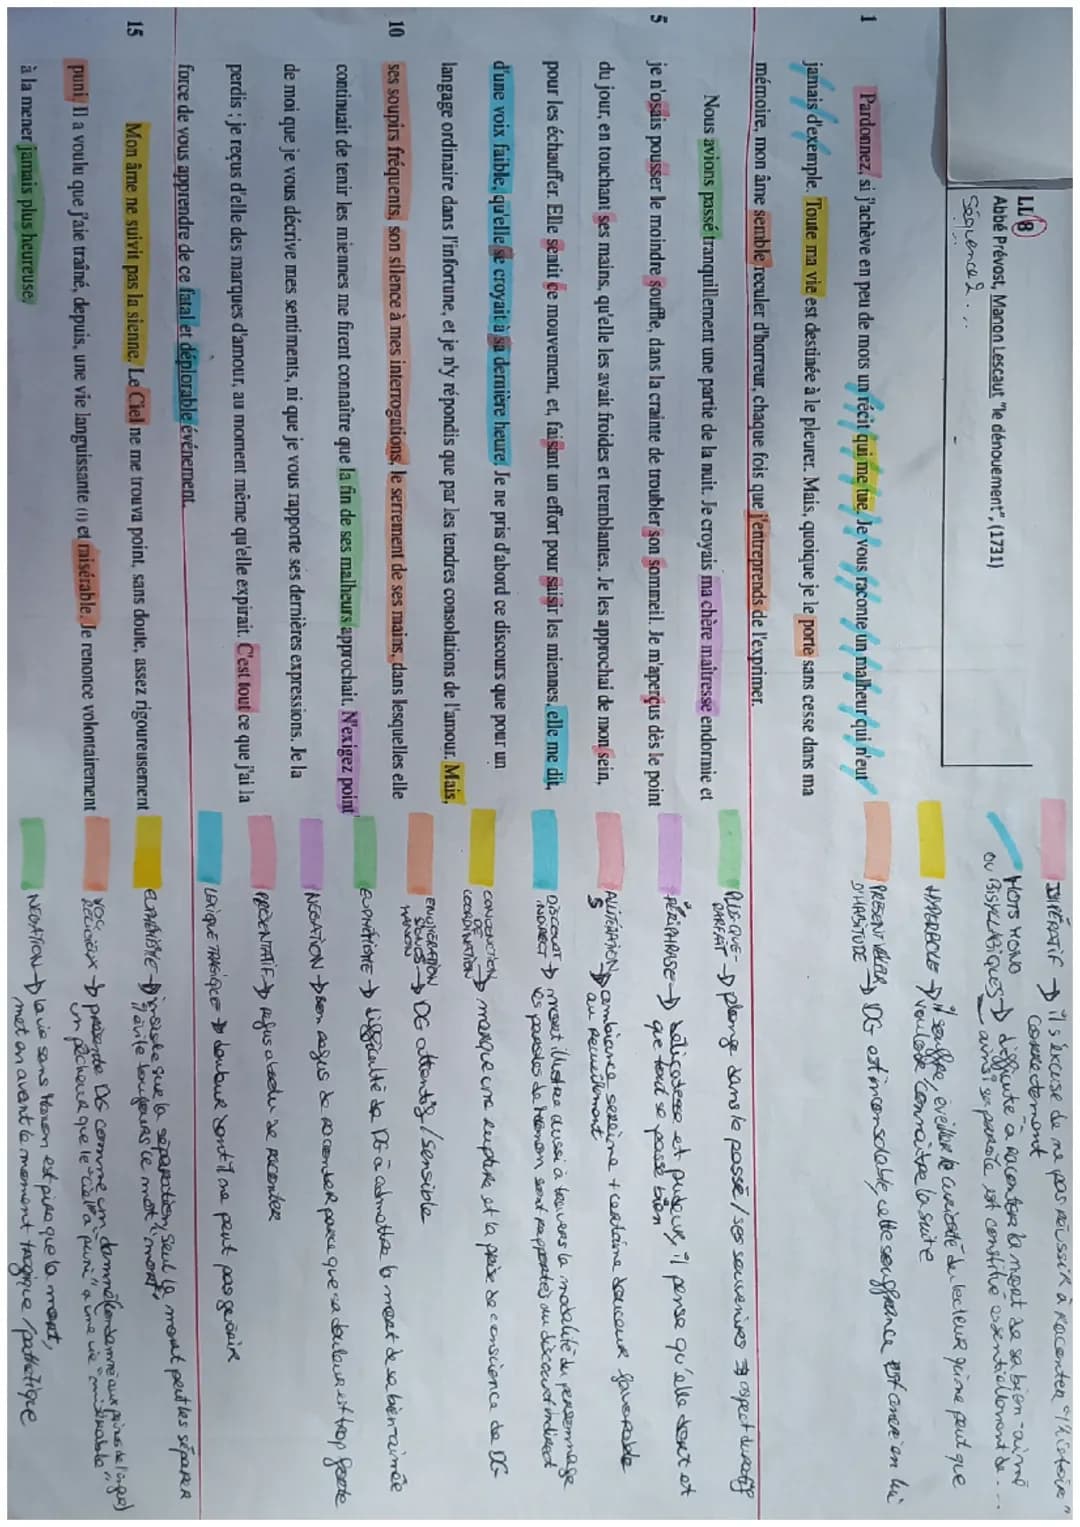 LL 8
Abbé Prévost, Manon Lescaut "le dénouement", (1731)
Séquence 2
1 Pardonnez, si j'achève en peu de mots un récit qui me tue. Je vous raconte un malheur qui n'eut
jamais d'exemple. Toute ma vie est destinée à le pleurer. Mais, quoique je le porte sans cesse dans ma
mémoire, mon âme semble reculer d'horreur, chaque fois que j'entreprends de l'exprimer.
Nous avions passé tranquillement une partie de la nuit. Je croyais ma chère maîtresse endormie et
5 je n'osais pousser le moindre souffle, dans la crainte de troubler son sommeil. Je m'aperçus dès le point
du jour, en touchant ses mains, qu'elle les avait froides et tremblantes. Je les approchai de mon sein,
pour les échauffer. Elle sentit ce mouvement, et, faisant un effort pour saisir les miennes, elle me dit,
d'une voix faible, qu'elle se croyait à sa dernière heure. Je ne pris d'abord ce discours que pour un
langage ordinaire dans l'infortune, et je n'y répondis que par les tendres consolations de l'amour. Mais,
10 ses soupirs fréquents, son silence à mes interrogations, le serrement de ses mains, dans lesquelles elle
continuait de tenir les miennes me firent connaître que la fin de ses malheurs approchait. N'exigez point
de moi que je vous décrive mes sentiments, ni que je vous rapporte ses dernières expressions. Je la
perdis ; je reçus d'elle des marques d'amour, au moment même qu'elle expirait. C'est tout ce que j'ai la
force de vous apprendre de ce fatal et déplorable événement.
15 Mon âme ne suivit pas la sienne. Le Ciel ne me trouva point, sans doute, assez rigoureusement
puni. Il a voulu que j'aie traîné, depuis, une vie languissante (1) et misérable. Je renonce volontairement
à la mener jamais plus heureuse.
IMPÉRATIF → il s'excuse de ne pas réussir à raconter "l'histoire"
correctement
MOTS MONO
OU BISYLLABIQUES → difficulté à raconter la mort de sa bien-aimé
ainsi sa parole est constitué essentiellement de...
HYPERBOLE → il souffre, éveiller la curiosité du lecteur qui ne peut que
vouloir connaître la suite
PRESENT
D'HABITUDE → DG est inconsolable, cette souffrance est ancré en lui
PLUS-QUE-
PARFAIT → plonge dans le passé / ses souvenirs aspect duratif
PÉRIPHRASE → délicatesse et pudeur, il pense qu'elle dort et
que tout se passe bien
ALLITÉRATION
S → ambiance sereine + certaine douceur favorable
au recueillement
DISCOURS
INDIRECT → mort illustre aussi à travers la modalité du personnage
les paroles de Manon sont rapportés au discours indirect
CONJONCTION
DE
COORDINATION → marque une rupture et la prise de conscience de DG
ENUMÉRATION
SIGNES
MANON → DG attentif / sensible
EUPHÉMISME → difficulté de DG à admettre la mort de sa bien aimée
NÉGATION → son refus de raconter parce que sa douleur est trop forte
PRÉSENTATIF → refus absolu de raconter
LEXIQUE TRAGIQUE → douleur dont il ne peut pas guérir
EUPHÉMISME → insiste sur la séparation, seul la mort peut les séparer
il évite toujours le mot "mort"
VOC
RELIGIEUX → présente DG comme un damné (condamné aux peines de l'enfer)
un pécheur que le "ciel" a "puni" a une vie "misérable"
NÉGATION → la vie sans Manon est pire que la mort,
met en avant le moment tragique / pathétique